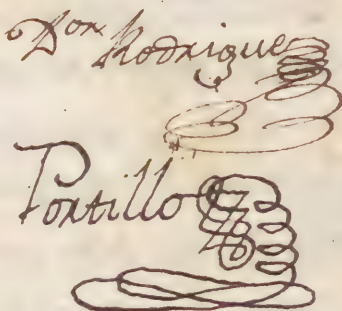 Don Rodrigue
Portillo